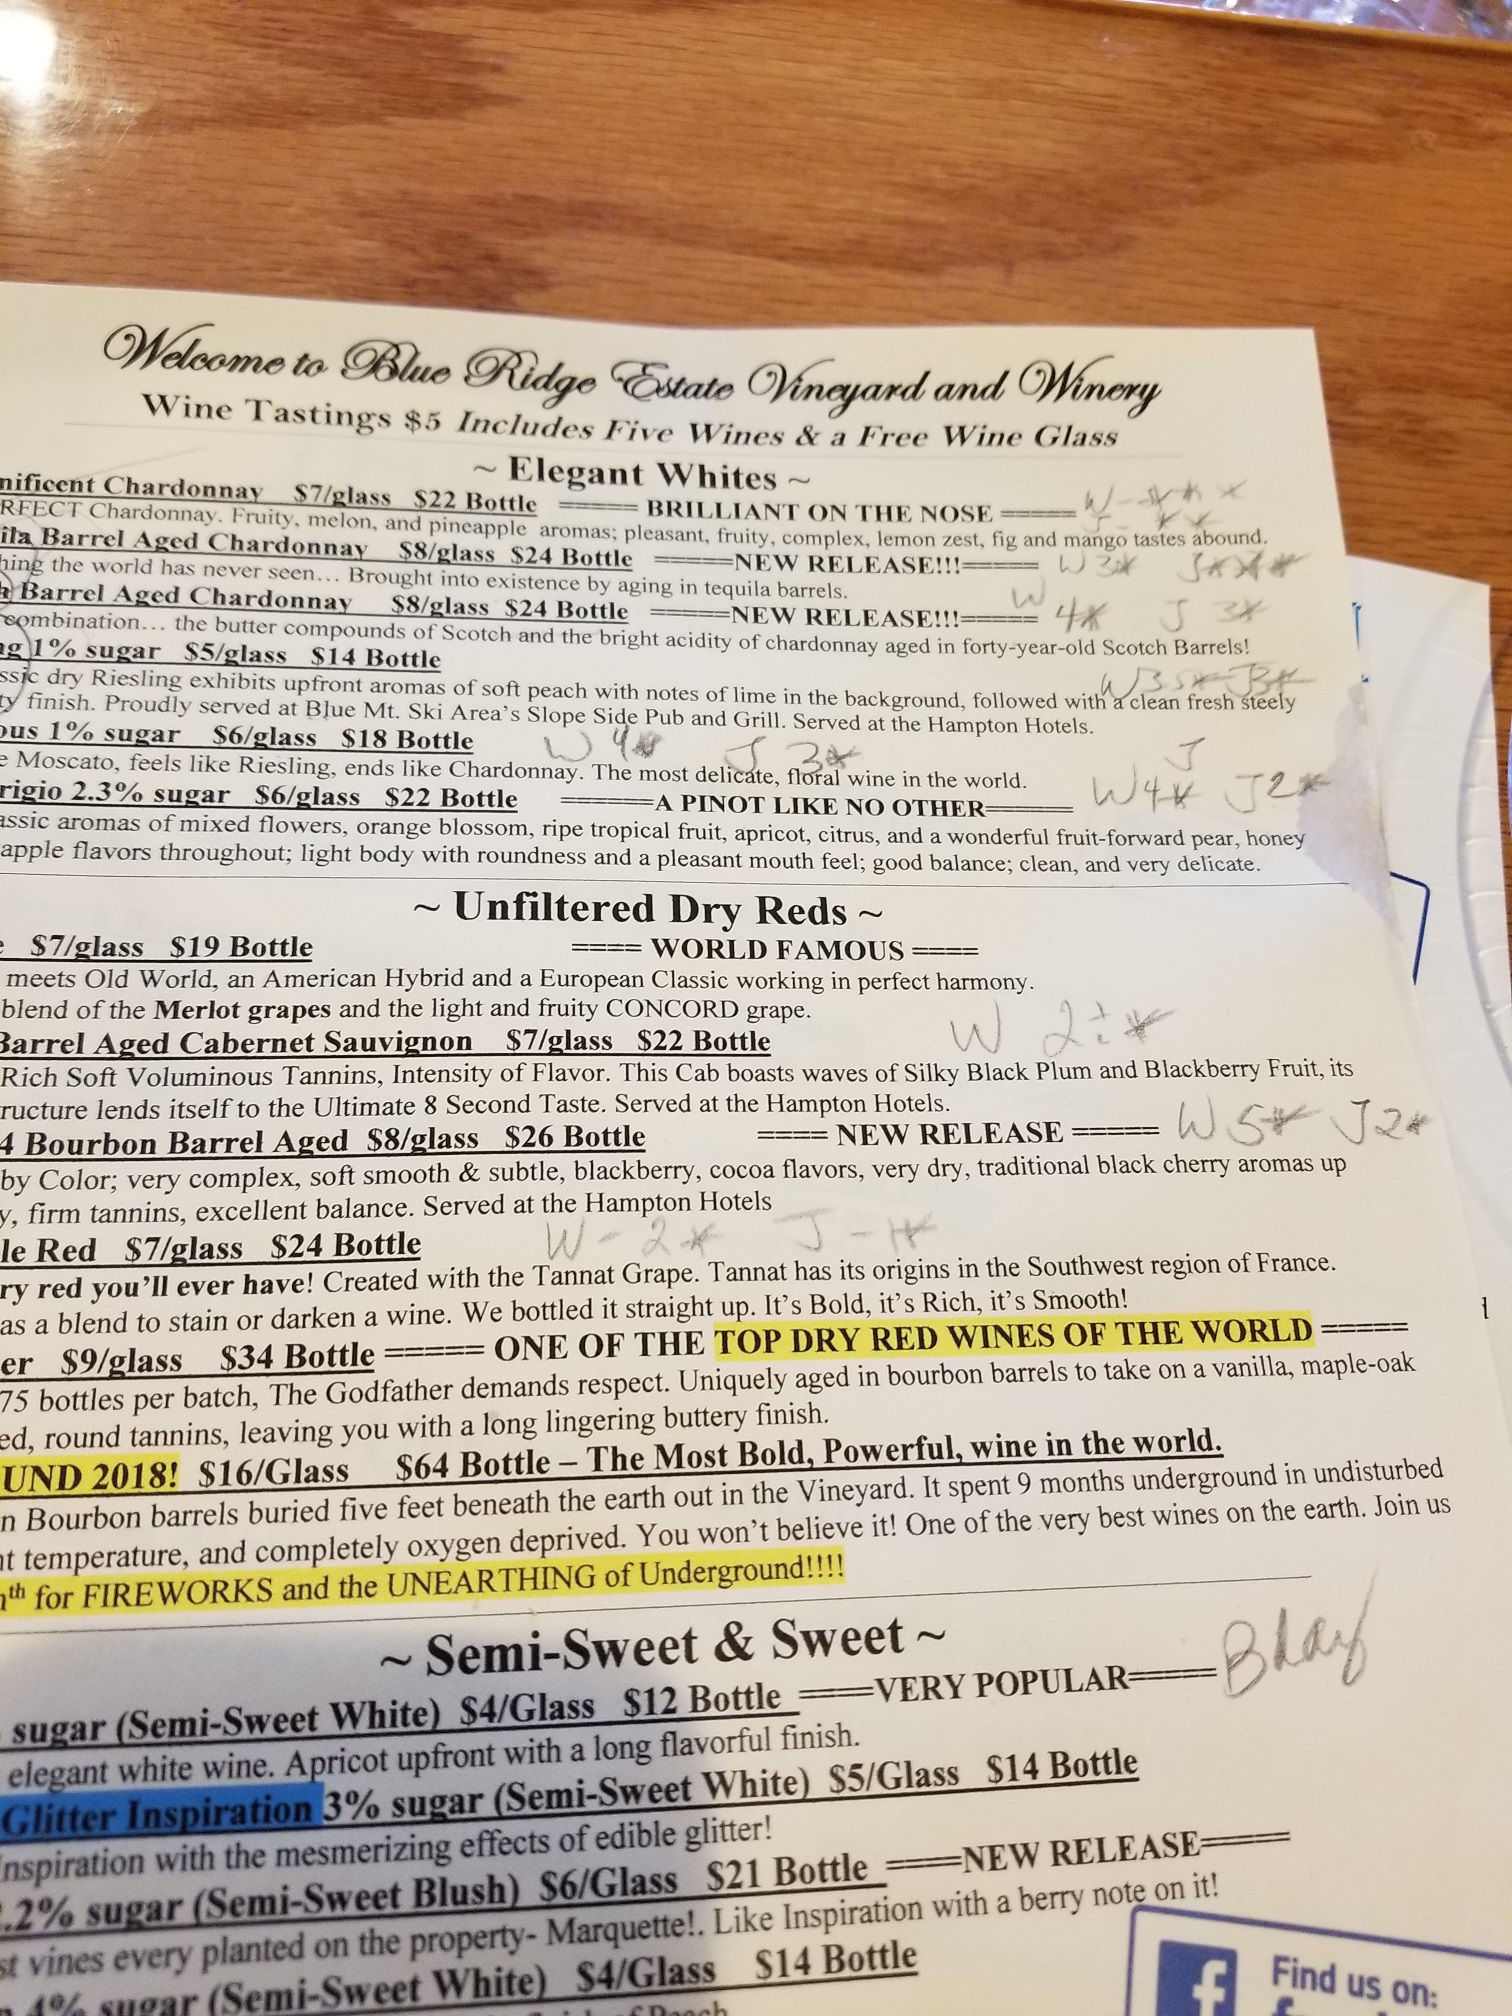 Welcome to Blue Ridge Estate Vineyard and Winery
Wine Tastings $5 Includes Five Wines & a Free Wine Glass
~ Elegant Whites ~
nificent Chardonnay $7/glass $22 Bottle ===== BRILLIANT ON THE NOSE =====
RFECT Chardonnay. Fruity, melon, and pineapple aromas; pleasant, fruity, complex, lemon zest, fig and mango tastes abound.
ila Barrel Aged Chardonnay $8/glass $24 Bottle =====NEW RELEASE!!!===== W 3* J
hing the world has never seen... Brought into existence by aging in tequila barrels.
Barrel Aged Chardonnay $8/glass $24 Bottle =====NEW RELEASE!!!===== W 4* J 3*
combination... the butter compounds of Scotch and the bright acidity of chardonnay aged in forty-year-old Scotch Barrels!
ng 1% sugar $5/glass $14 Bottle
ssic dry Riesling exhibits upfront aromas of soft peach with notes of lime in the background, followed with a clean fresh steely
ty finish. Proudly served at Blue Mt. Ski Area's Slope Side Pub and Grill. Served at the Hampton Hotels.
ous 1% sugar $6/glass $18 Bottle W 4* J 3*
e Moscato, feels like Riesling, ends like Chardonnay. The most delicate, floral wine in the world. J
rigio 2.3% sugar $6/glass $22 Bottle ======A PINOT LIKE NO OTHER====== W4* J2*
assic aromas of mixed flowers, orange blossom, ripe tropical fruit, apricot, citrus, and a wonderful fruit-forward pear, honey
apple flavors throughout; light body with roundness and a pleasant mouth feel; good balance; clean, and very delicate.
~ Unfiltered Dry Reds ~
e $7/glass $19 Bottle ==== WORLD FAMOUS ====
meets Old World, an American Hybrid and a European Classic working in perfect harmony.
blend of the Merlot grapes and the light and fruity CONCORD grape.
Barrel Aged Cabernet Sauvignon $7/glass $22 Bottle W 2
Rich Soft Voluminous Tannins, Intensity of Flavor. This Cab boasts waves of Silky Black Plum and Blackberry Fruit, its
ructure lends itself to the Ultimate 8 Second Taste. Served at the Hampton Hotels.
4 Bourbon Barrel Aged $8/glass $26 Bottle ==== NEW RELEASE ===== W 5* J2*
by Color; very complex, soft smooth & subtle, blackberry, cocoa flavors, very dry, traditional black cherry aromas up
y, firm tannins, excellent balance. Served at the Hampton Hotels
le Red $7/glass $24 Bottle W - 2* J - 1*
ry red you'll ever have! Created with the Tannat Grape. Tannat has its origins in the Southwest region of France.
as a blend to stain or darken a wine. We bottled it straight up. It's Bold, it's Rich, it's Smooth!
er $9/glass $34 Bottle ===== ONE OF THE TOP DRY RED WINES OF THE WORLD =====
75 bottles per batch, The Godfather demands respect. Uniquely aged in bourbon barrels to take on a vanilla, maple-oak
ed, round tannins, leaving you with a long lingering buttery finish.
UND 2018! $16/Glass $64 Bottle – The Most Bold, Powerful, wine in the world.
n Bourbon barrels buried five feet beneath the earth out in the Vineyard. It spent 9 months underground in undisturbed
nt temperature, and completely oxygen deprived. You won't believe it! One of the very best wines on the earth. Join us
th for FIREWORKS and the UNEARTHING of Underground!!!!
~ Semi-Sweet & Sweet ~
sugar (Semi-Sweet White) $4/Glass $12 Bottle ====VERY POPULAR=====
elegant white wine. Apricot upfront with a long flavorful finish.
Glitter Inspiration 3% sugar (Semi-Sweet White) $5/Glass $14 Bottle
nspiration with the mesmerizing effects of edible glitter!
.2% sugar (Semi-Sweet Blush) $6/Glass $21 Bottle ====NEW RELEASE=====
st vines every planted on the property- Marquette!. Like Inspiration with a berry note on it!
4% sugar (Semi-Sweet White) $4/Glass $14 Bottle
f Find us on: